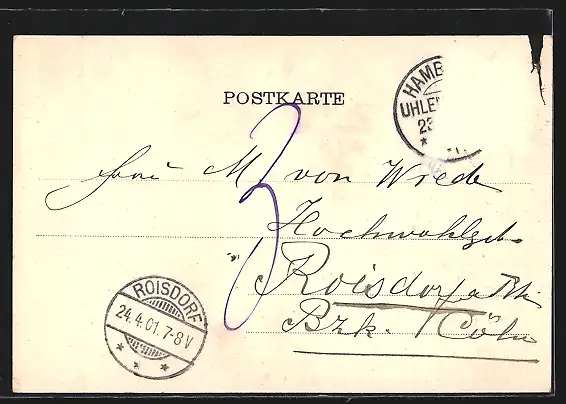 POSTKARTE
HAMB
UHLEN
23
Frau M. von Wrede
Hochwohlgeb.
Roisdorf a Rh.
Bzk. Cöln
3
ROISDORF
24.4.01.7-8V